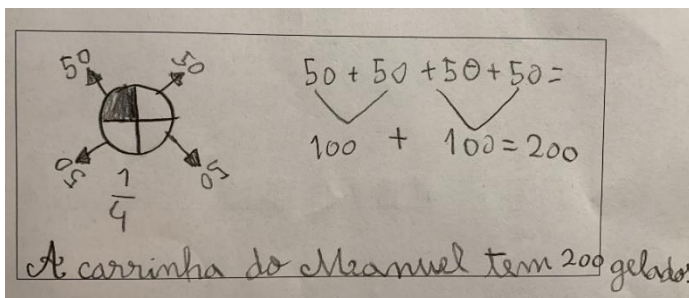 50 50
50 + 50 + 50 + 50 =
100 + 100 = 200
50 50
1
4
A carrinha do Manuel tem 200 gelados